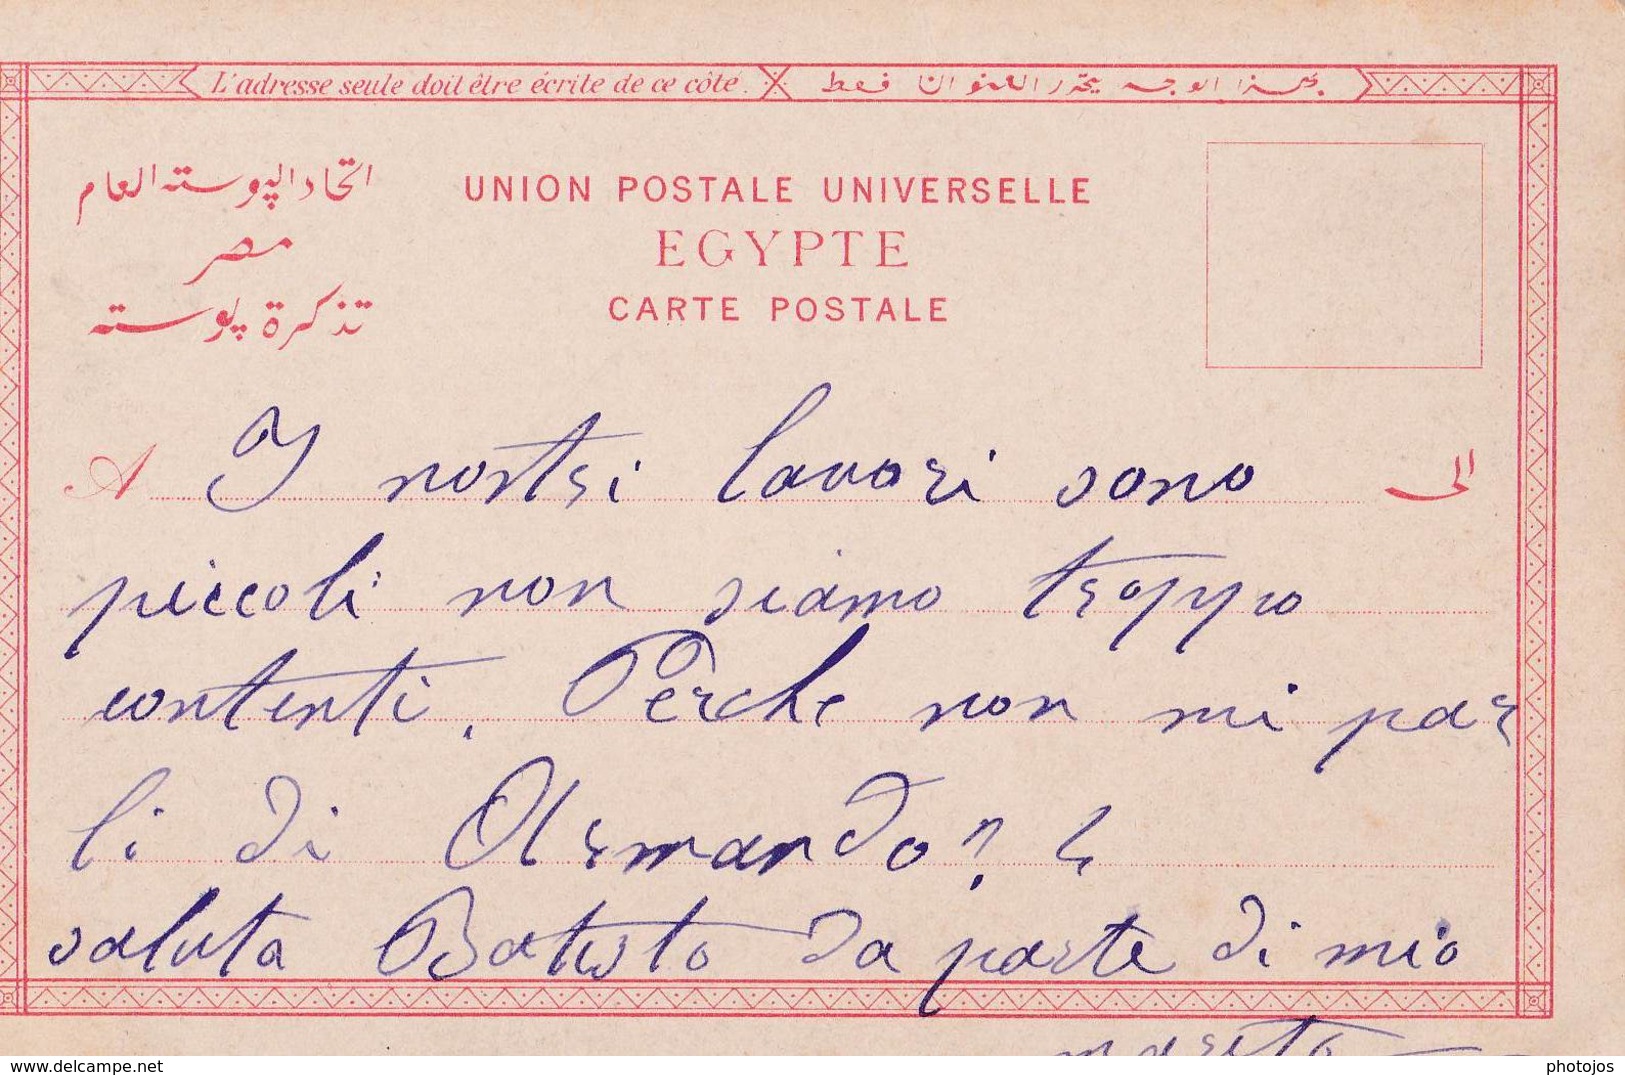 L'adresse seule doit être écrite de ce côté.
بهذا الوجه يحرر العنوان فقط
اتحاد الپوسته العام
مصر
تذكرة پوسته
UNION POSTALE UNIVERSELLE
EGYPTE
CARTE POSTALE
A I nostri lavori sono الى
piccoli non siamo troppo
contenti. Perche non mi par
li di Armando? e
saluta Batisto da parte di mio
marito
delcampe.net
photojos